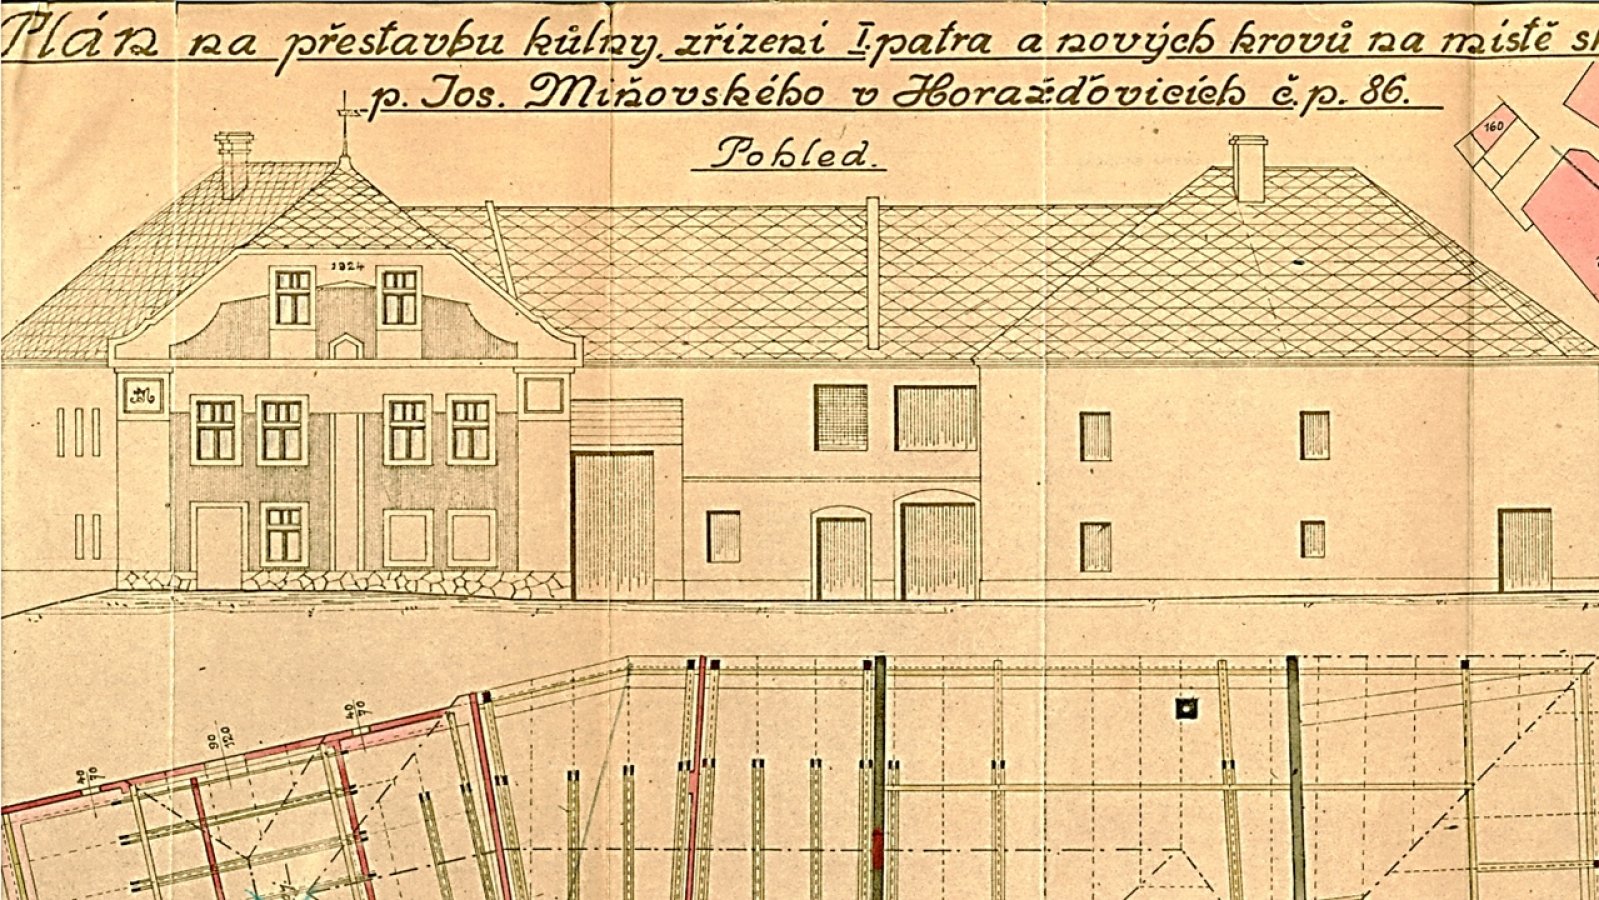 Plán na přestavbu kůlny, zřízení I. patra a nových krovů na místě
p. Jos. Miňovského v Horažďovicích č.p. 86.
Pohled.
160
1924
M
40
70
90
120
40
70